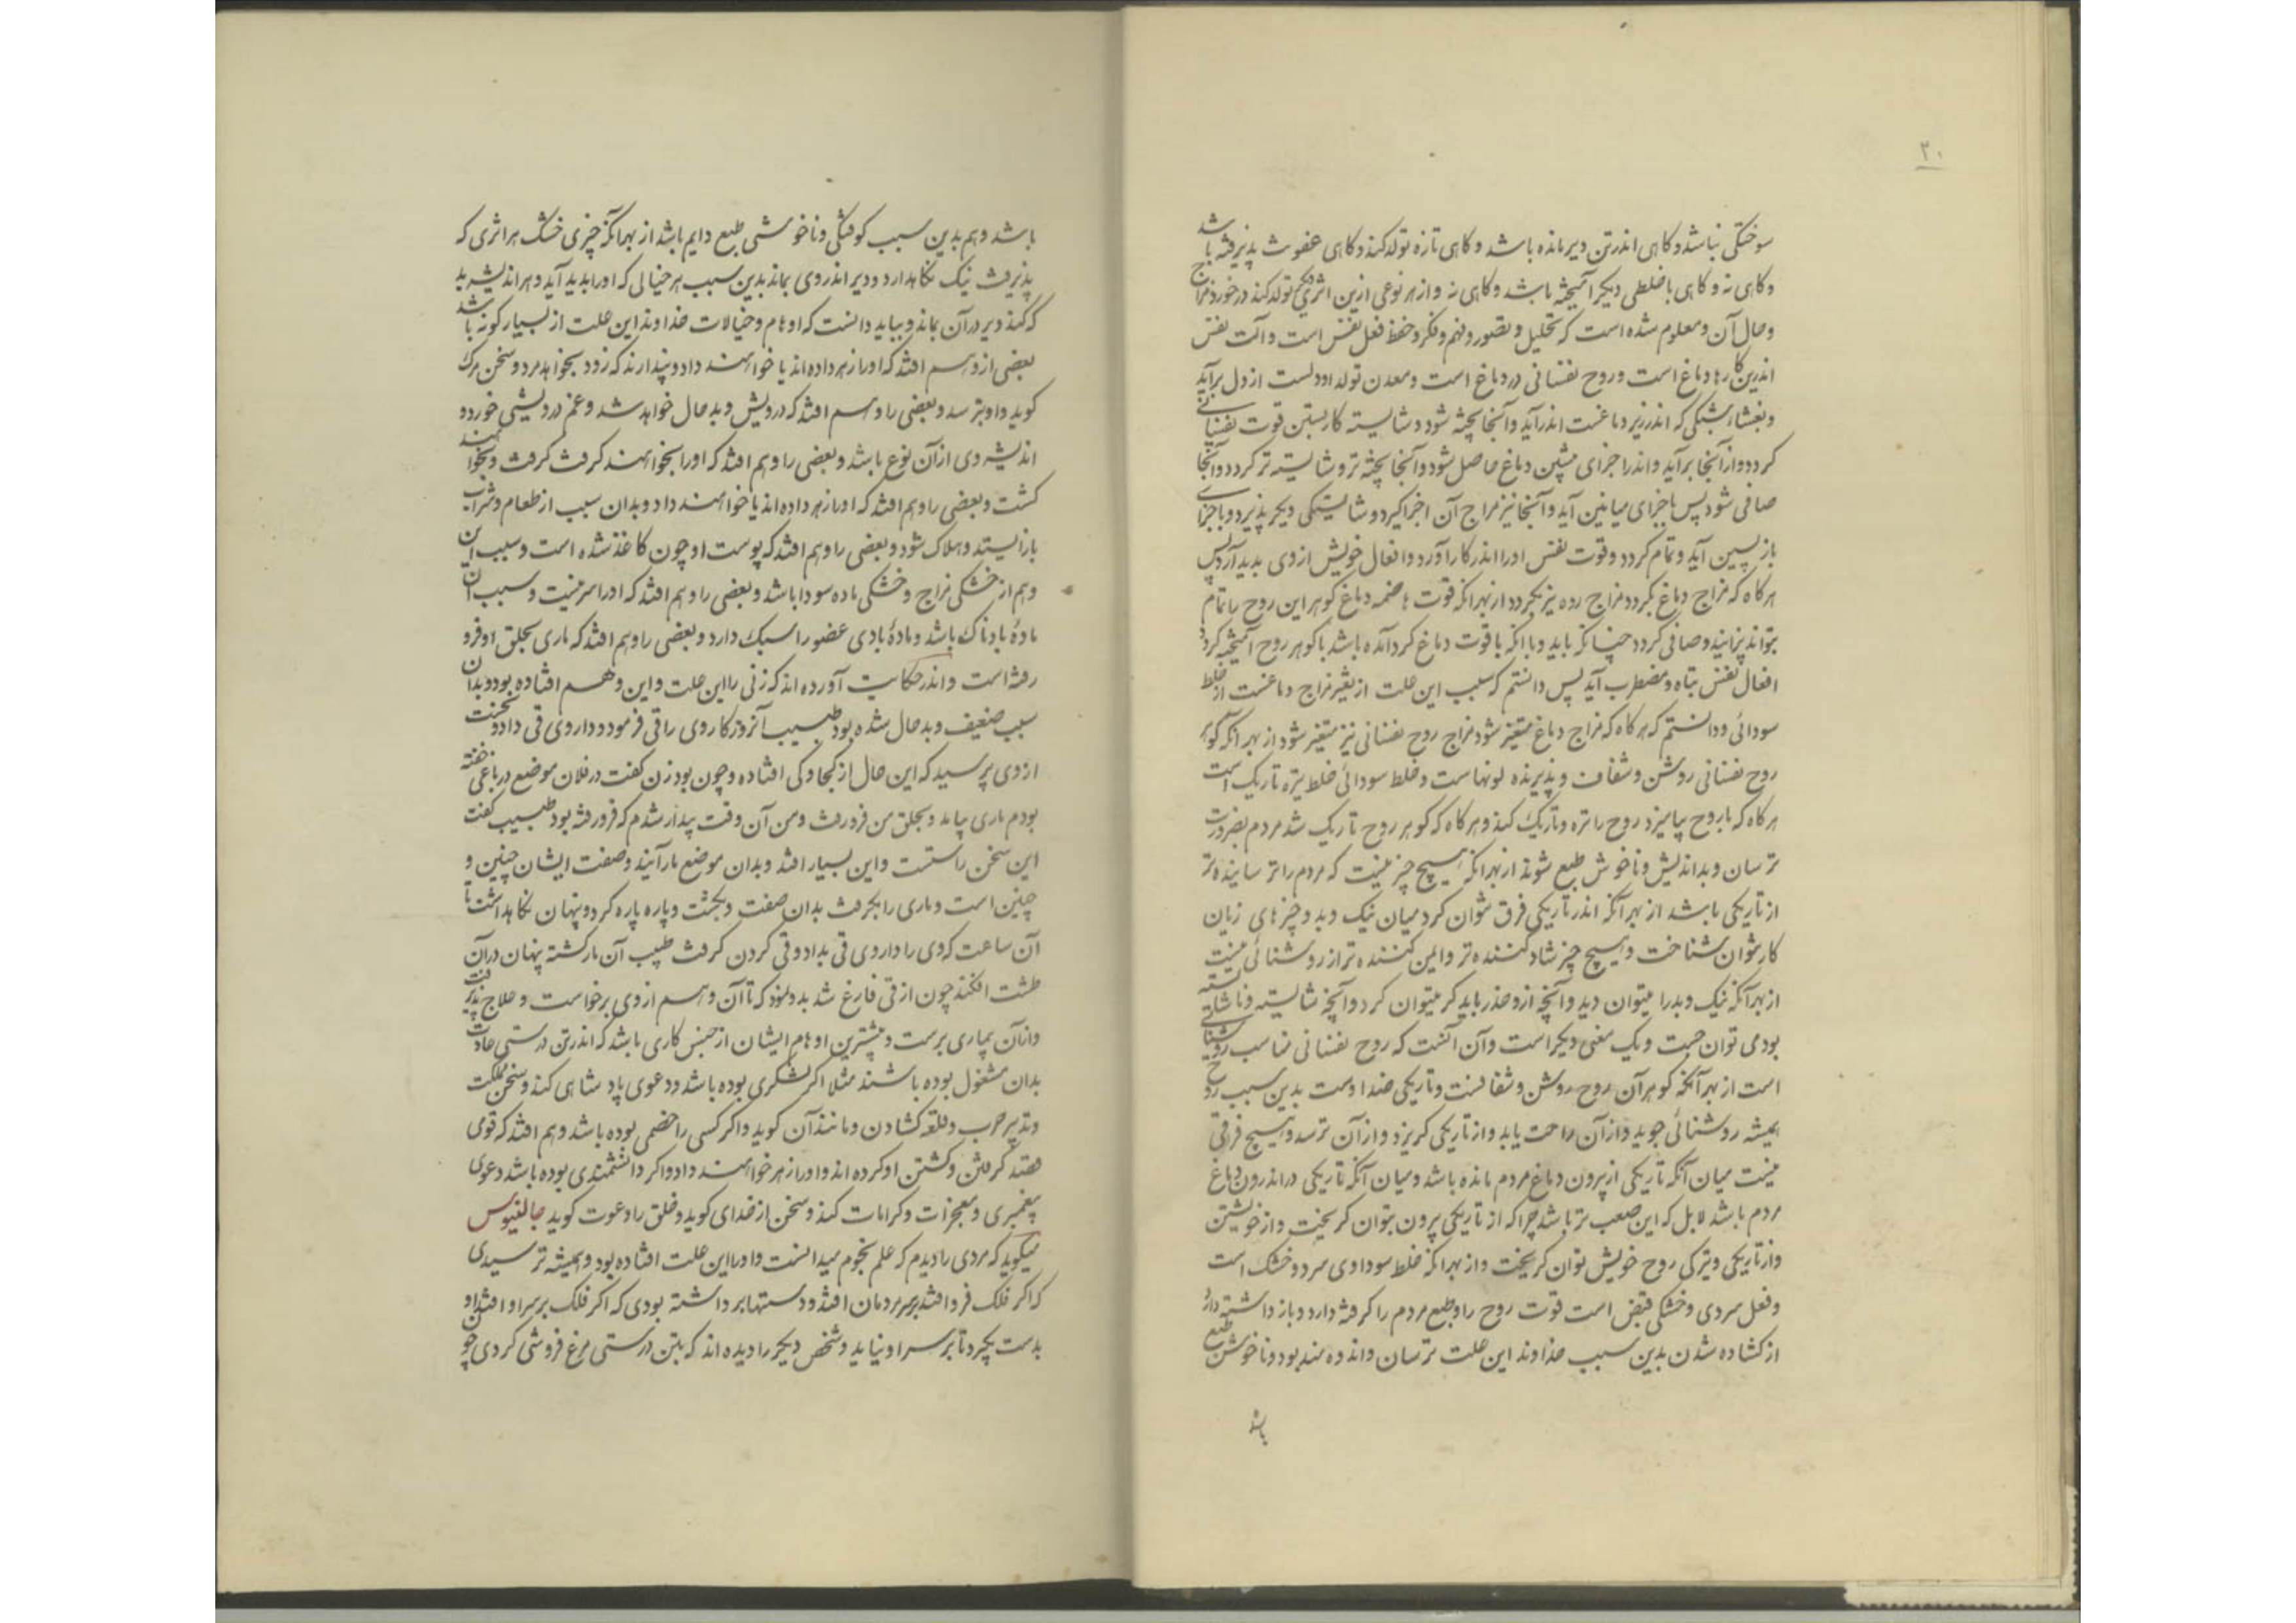 ۳۰
سوختگی نباشد و کاهی اندر تن دیر مانده باشد و کاهی تازه تولد کند و کاهی عفونت پذیرفته باشد
و کاهی نه و کاهی با خلطی دیکر آمیخته باشد و کاهی نه و از هر نوعی ازین اثری دیکر تولد کند در خور مزاج
و حال آن و معلوم شده است که تخییل و تصور و فهم و فکر و حفظ فعل نفس است و آلت نفس
اندرین کارها دماغ است و روح نفسانی در دماغ است و معدن تولد او دلست از دل برآید
و بغشاء شبکی که اندر زیر دماغست اندر آید و آنجا پخته شود و شایسته کار بستن قوت نفسانی
کردد و از آنجا برآید و اندر اجزای پیشین دماغ حاصل شود و آنجا پخته تر و شایسته تر کردد و آنجا
صافی شود پس باجزای میانین آید و آنجا نیز مزاج آن اجزا کیرد و شایستکی دیکر پذیرد و باجزای
بازپسین آید و تمام کردد و قوت نفس او را اندر کار آورد و افعال خویش از وی بدید آرد پس
هرکاه که مزاج دماغ بکردد مزاج روح نیز بکردد از بهر آنکه قوت هاضمه دماغ کوهر این روح را تمام
نتواند پزانید و صافی کردد چنانکه باید و با آنکه با قوت دماغ کرد آمده باشد با کوهر روح آمیخته کردد
افعال نفس تباه و مضطرب آید پس دانستم که سبب این علت از تغیر مزاج دماغست از خلط
سودائی و دانستم که هرکاه که مزاج دماغ متغیر شود مزاج روح نفسانی نیز متغیر شود از بهر آنکه کوهر
روح نفسانی روشن و شفاف و پذیرنده لونهاست و خلط سودائی خلط تیره تاریک است
هرکاه که با روح بیامیزد روح را تیره و تاریک کند و هرکاه که کوهر روح تاریک شد مردم بضرورت
ترسان و بد اندیش و ناخوش طبع شوند از بهر آنکه هیچ چیز نیست که مردم را ترساننده تر
از تاریکی باشد از بهر آنکه اندر تاریکی فرق نتوان کرد میان نیک و بد و چیزهای زیان
کار نتوان شناخت و هیچ چیز شاد کننده تر و ایمن کننده تر از روشنائی نیست
از بهر آنکه نیک و بد را میتوان دید و آنچه از و حذر باید کرد میتوان کرد و آنچه شایسته و ناشایسته
بود می توان جست و یک معنی دیکر است و آن آنست که روح نفسانی مناسب روشنائی
است از بهر آنکه کوهر آن روح روشن و شفافست و تاریکی ضد اوست بدین سبب روح
همیشه روشنائی جوید و از آن راحت یابد و از تاریکی کریزد و از آن ترسد و هیچ فرقی
نیست میان آنکه تاریکی از بیرون دماغ مردم مانده باشد و میان آنکه تاریکی در اندرون دماغ
مردم باشد لابل که این صعب تر باشد چرا که از تاریکی بیرون بتوان کریخت و از خویشتن
و از تاریکی و تیرکی روح خویش نتوان کریخت و از بهر آنکه خلط سوداوی سرد و خشک است
و فعل سردی و خشکی قبض است قوت روح را و طبع مردم را کرفته دارد و باز داشته دارد
از کشاده شدن بدین سبب خداوند این علت ترسان و اندوه مند بود و ناخوش طبع
باشد
باشد و هم بدین سبب کوفتکی و ناخوشی طبع دایم باشد از بهر آنکه چیزی خشک هر اثری که
پذیرفت نیک نکاهدارد و دیر اندر وی بماند بدین سبب هر خیالی که او را بدید آید و هر اندیشه بد
که کند دیر در آن بماند و بباید دانست که اوهام و خیالات خداوند این علت از بسیار کونه باشد
بعضی از وهم افتد که او را زهر داده اند یا خواهند داد و پندارند که زود بخواهد مرد و سخن مرک
کوید و او بترسد و بعضی را وهم افتد که درویش و بد حال خواهد شد و غم درویشی خورد و
اندیشه وی از آن نوع باشد و بعضی را وهم افتد که او را بخواهند کرفت و بخواهند
کشت و بعضی را وهم افتد که او را زهر داده اند یا خواهند داد و بدان سبب از طعام و شراب
باز ایستد و هلاک شود و بعضی را وهم افتد که پوست او چون کاغذ شده است و سبب این
وهم از خشکی مزاج و خشکی ماده سودا باشد و بعضی را وهم افتد که او را سر نیست و سبب آن
مادهٔ بادناک باشد و مادهٔ بادی عضو را سبک دارد و بعضی را وهم افتد که ماری بحلق او فرو
رفته است و اندر حکایت آورده اند که زنی را این علت و این وهم افتاده بود و بدان
سبب ضعیف و بد حال شده بود طبیب آنروزکار وی را قی فرمود و داروی قی داد و نخست
از وی پرسید که این حال از کجا و کی افتاده و چون بود زن کفت در فلان موضع در باغی خفته
بودم ماری بیامد و بحلق من فرو رفت و من آن وقت بیدار شدم که فرو رفته بود طبیب کفت
این سخن راستست و این بسیار افتد و بدان موضع مار آیند و صفت ایشان چنین و
چنین است و ماری را بکرفت بدان صفت و بکشت و پاره پاره کرد و پنهان نکاهداشت تا
آن ساعت که وی را داروی قی بداد و قی کردن کرفت طبیب آن مار کشته پنهان در آن
طشت افکند چون از قی فارغ شد بدو نمود که تا آن وهم از وی برخواست و علاج پذیرفت
و از آن بیماری برست و بیشترین اوهام ایشان از جنس کاری باشد که اندر تن درستی عادت
بدان مشغول بوده باشند مثلا اکر لشکری بوده باشد دعوی پادشاهی کند و سخن مملکت
و تدبیر حرب و قلعه کشادن و مانند آن کوید و اکر کسی را خصمی بوده باشد وهم افتد که قوی
قصد کرفتن و کشتن او کرده اند و او را زهر خواهند داد و اکر دانشمندی بوده باشد دعوی
پیغمبری و معجزات و کرامات کند و سخن از خدای کوید و خلق را دعوت کوید جالینوس
میکوید که مردی را دیدم که علم نجوم میدانست و او را این علت افتاده بود و همیشه ترسیدی
که اکر فلک فرو افتد بر سر مردمان افتد و دستها برداشته بودی که اکر فلک بر سر او افتد او
بدست بکیرد تا بر سر او نیاید و شخص دیکر را دیده اند که بتن درستی مرغ فروشی کردی چون